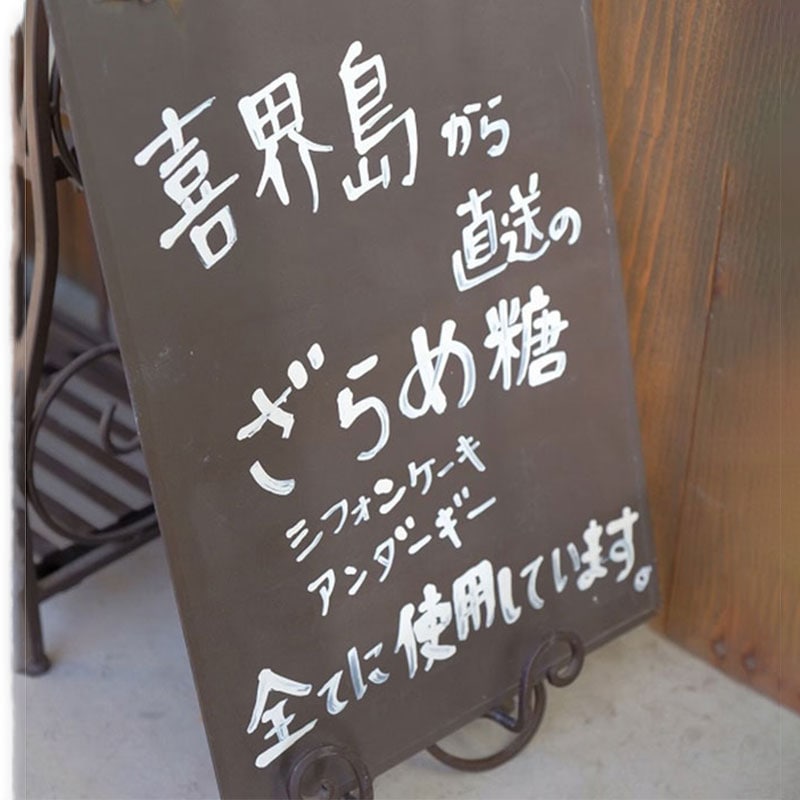 喜界島から
直送の
ざらめ糖
シフォンケーキ
アンダーギー
全てに使用しています。